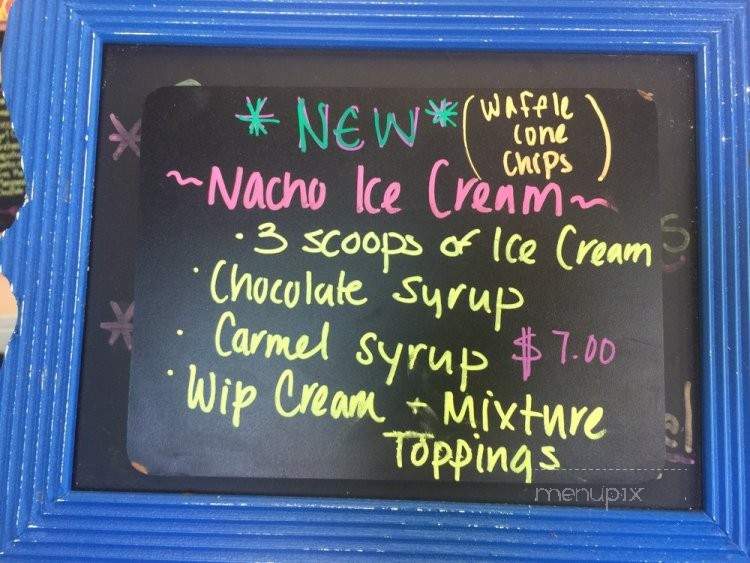 * NEW * (Waffle
cone
Chips)
~Nacho Ice Cream~
· 3 scoops of Ice Cream
· Chocolate syrup
· Carmel syrup $7.00
· Wip Cream + Mixture
Toppings
menupix